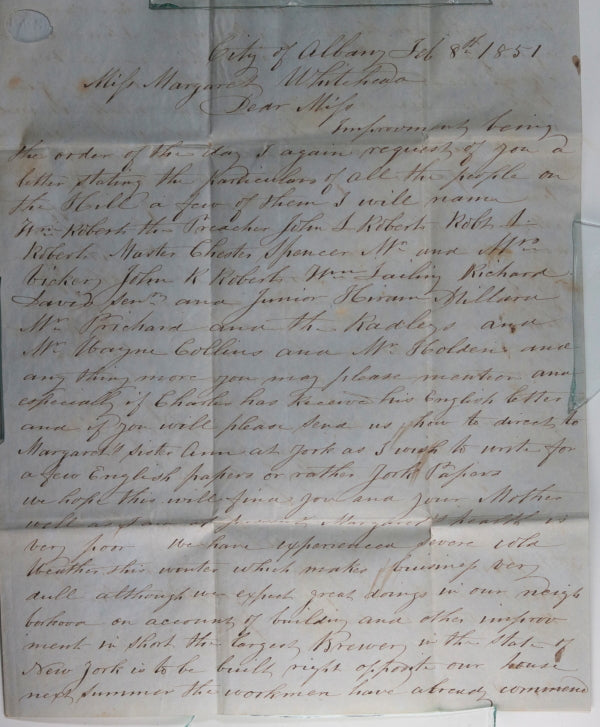 City of Albany Feb 8th 1851
Miss Margaret Whitehead
Dear Miss
Improvment being
the order of the day I again request of you a
letter stating the particulars of all the people on
the Hill a few of them I will name
Wm Roberts the Preacher John L Roberts Robt L
Roberts Master Chester Spencer Mr and Mrs
Vickery John K Roberts Wm Richard
David Senr and Junior Hiram Millard
Mr Prichard and the Radleys and
Mr Wayne Collins and Mr Holden and
any thing more you may please mention and
especially if Charles has Receive his English letter
and if you will please send us how to direct to
Margarets sister Ann at York as I wish to write for
a few English papers or rather York Papers
we hope this will find you and your Mother
well as I am at present Margarets health is
very poor We have experienced severe cold
Weather this winter which makes buisness very
dull although we expect great doings in our neigh
borhood on account of building and other improv
ment in short the largest Brewery in the state of
New York is to be built right opposite our house
next summer the workmen have already commend